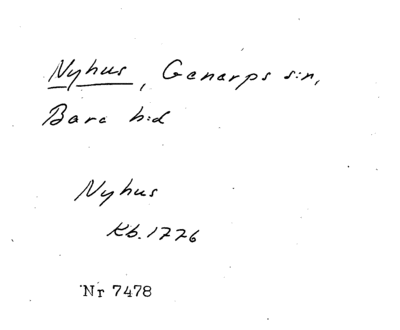 Nyhus, Genarps s:n,
Bara h:d
Nyhus
Kb. 1776
Nr 7478